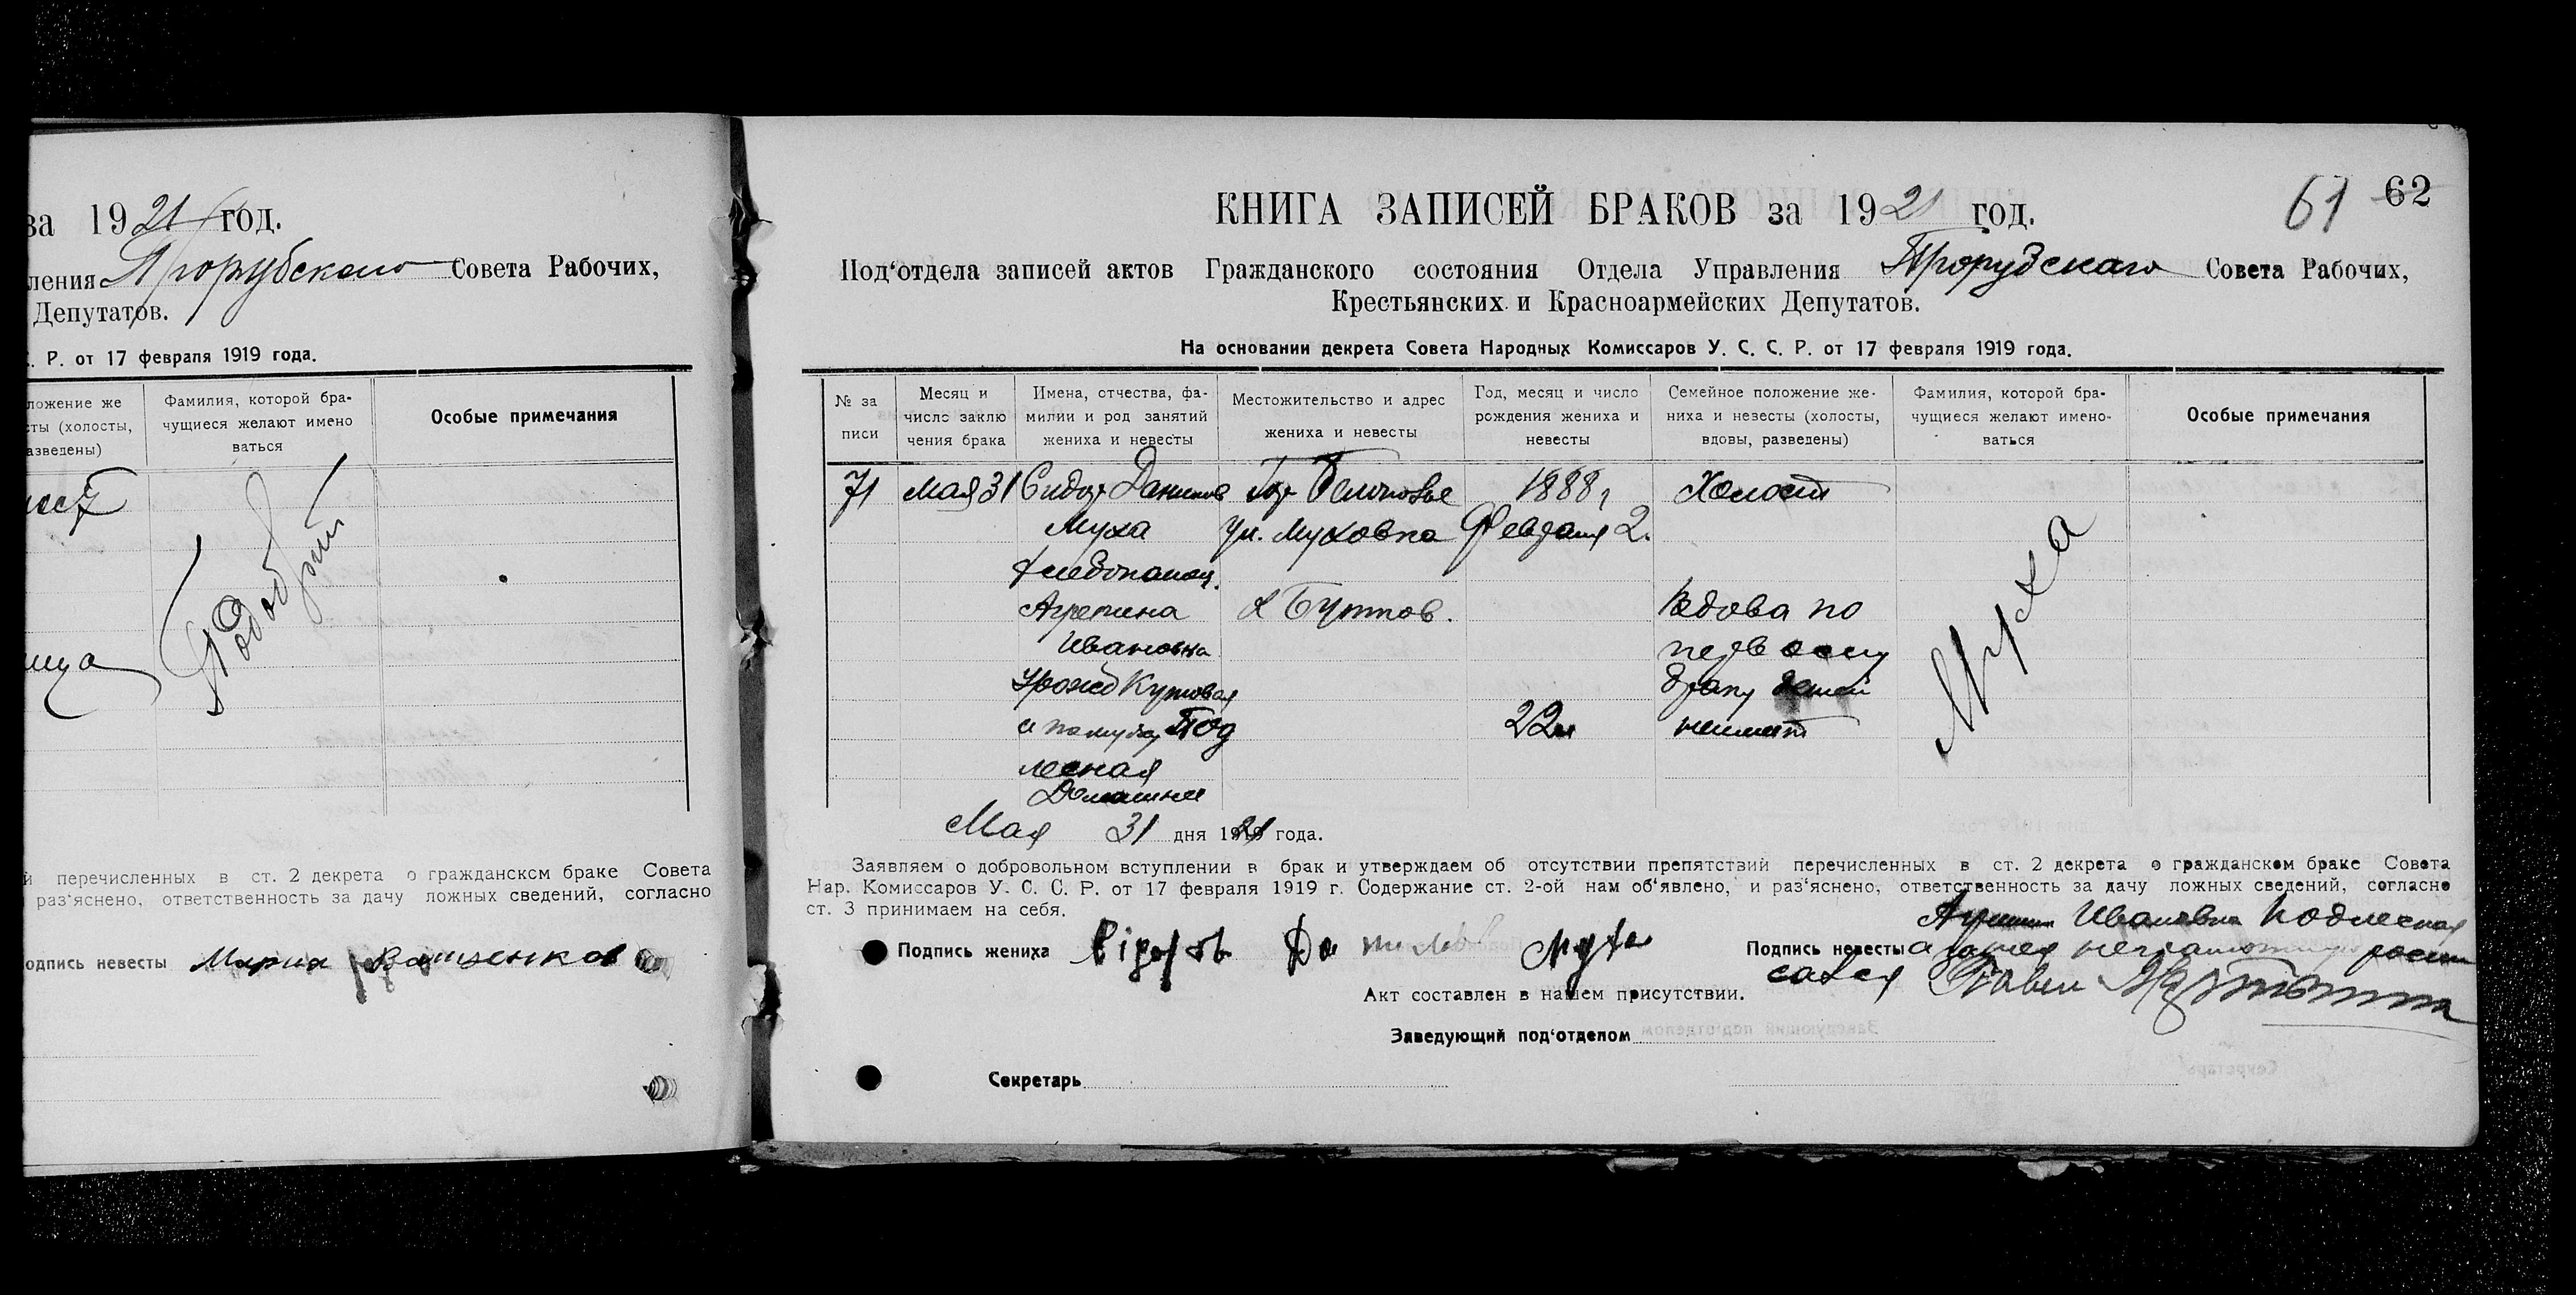 за 1921 год.
ления Прорубского Совета Рабочих,
Депутатов.
С. Р. от 17 февраля 1919 года.
ложение же
сты (холосты,
азведены)
Фамилия, которой бра-
чущиеся желают имено
ваться
Особые примечания
Подобрий
й перечисленных в ст. 2 декрета о гражданском браке Совета
раз'яснено, ответственность за дачу ложных сведений, согласно
одпись невесты Мария
61 62
КНИГА ЗАПИСЕЙ БРАКОВ за 1921 год.
Под'отдела записей актов Гражданского состояния Отдела Управления Прорубскаго Совета Рабочих,
Крестьянских и Красноармейских Депутатов.
На основании декрета Совета Народных Комиссаров У. С. С. Р. от 17 февраля 1919 года.
№ за
писи
Месяц и
число заклю
чения брака
Имена, отчества, фа-
милии и род занятий
жениха и невесты
Местожительство и адрес
жениха и невесты
Год, месяц и число
рождения жениха и
невесты
Семейное положение же-
ниха и невесты (холосты,
вдовы, разведены)
Фамилия, которой бра-
чущиеся желают имено-
ваться
Особые примечания
71
Мая 31
Сидор Данилов
Муха
хлебопашец.
Агрепина
Ивановна
Урожед Кутовая
и по мужу Под
лесная
Домашнее
Гор Белополье
ул. Муховка
х Бутов.
1888 г
Февраля 2.
22 л
Холост
Вдова по
первому
браку детей
неимеет
Муха
Мая 31 дня 1921 года.
Заявляем о добровольном вступлении в брак и утверждаем об отсутствии препятствий перечисленных в ст. 2 декрета о гражданском браке Совета
Нар. Комиссаров У. С. С. Р. от 17 февраля 1919 г. Содержание ст. 2-ой нам об'явлено, и раз'яснено, ответственность за дачу ложных сведений, согласно
ст. 3 принимаем на себя.
Подпись жениха Муха
Ивановна Подлесная
Подпись невесты а за нея неграмотную росписался Павел
Акт составлен в нашем присутствии.
Заведующий под'отделом
Секретарь